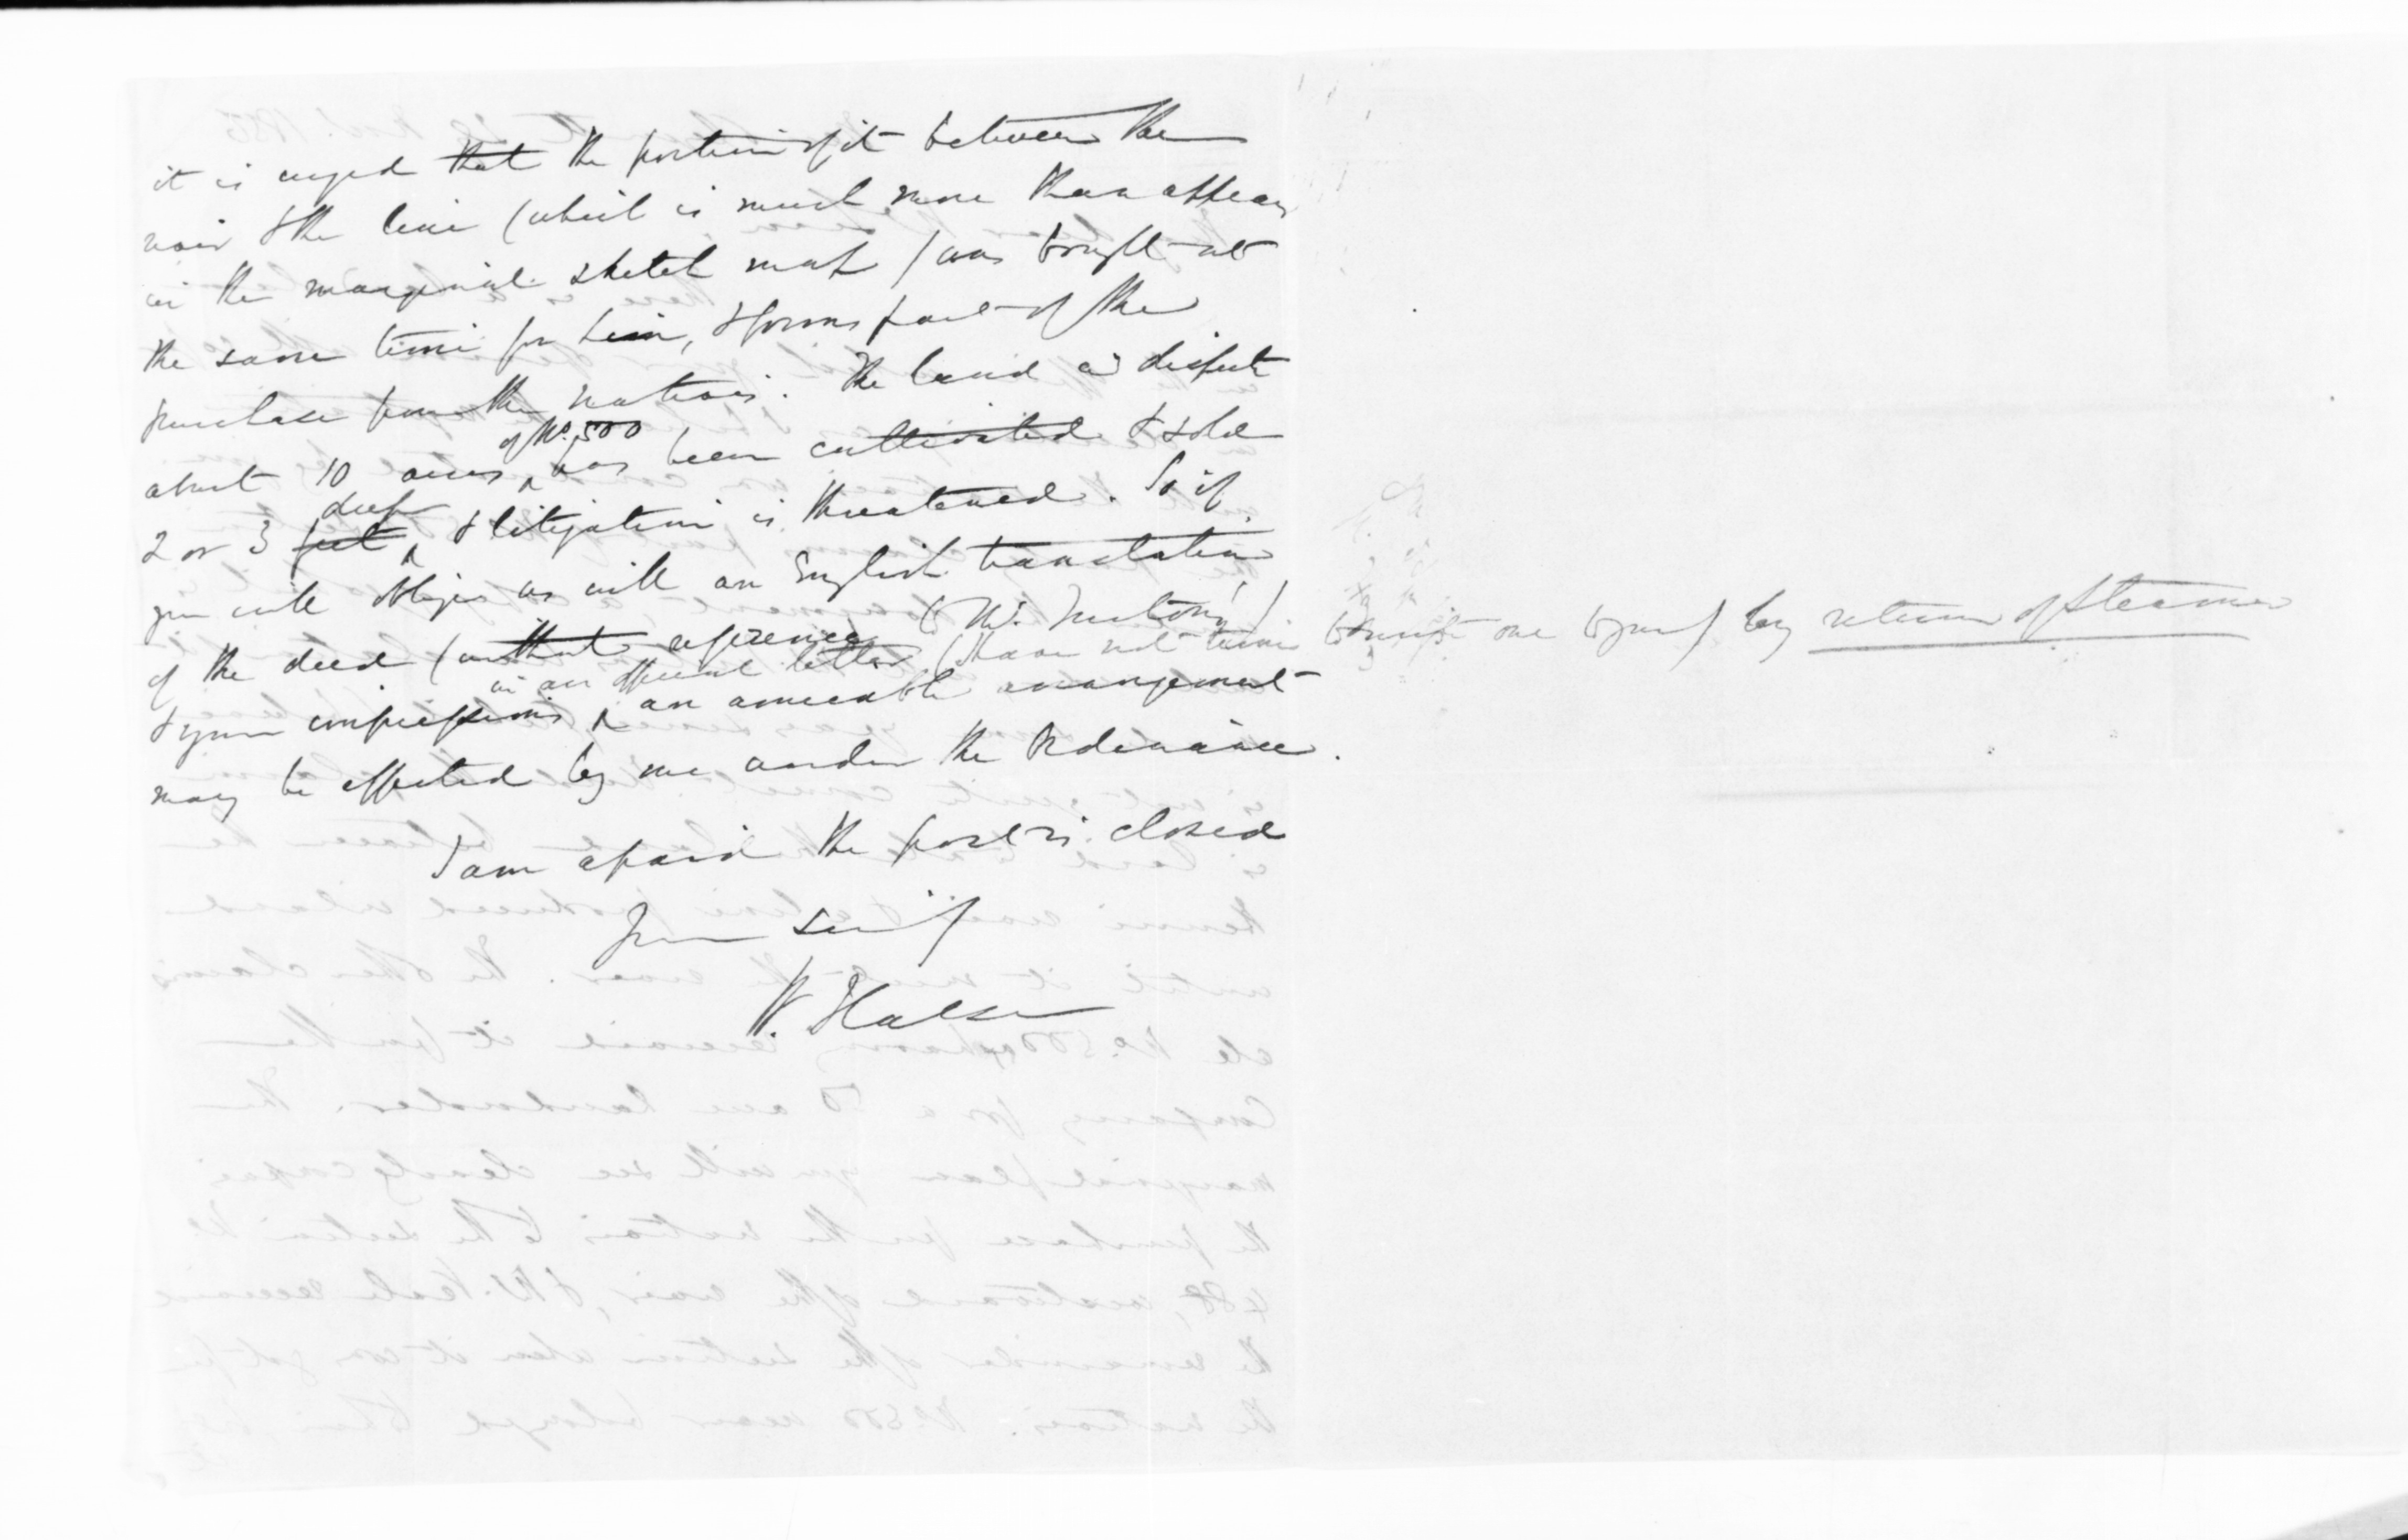 it is urged that the portion of it between the
river & the line (which is much more than appears
in the marginal sketch map) was bought at
the same time for him, & forms part of the
purchase from the natives. The land in dispute
about 10 acres of No. 500 has been cultivated & sold
2 or 3 feet deep & litigation is threatened. So if
you will oblige us with an English translation
of the deed (without reference to Mr.
& your impressions in an official letter (I have not time to write one to you) by return of Steamer
an amicable arrangement
may be effected by me under the Ordinance.
I am afraid the post is closed
Yours
W. Halse